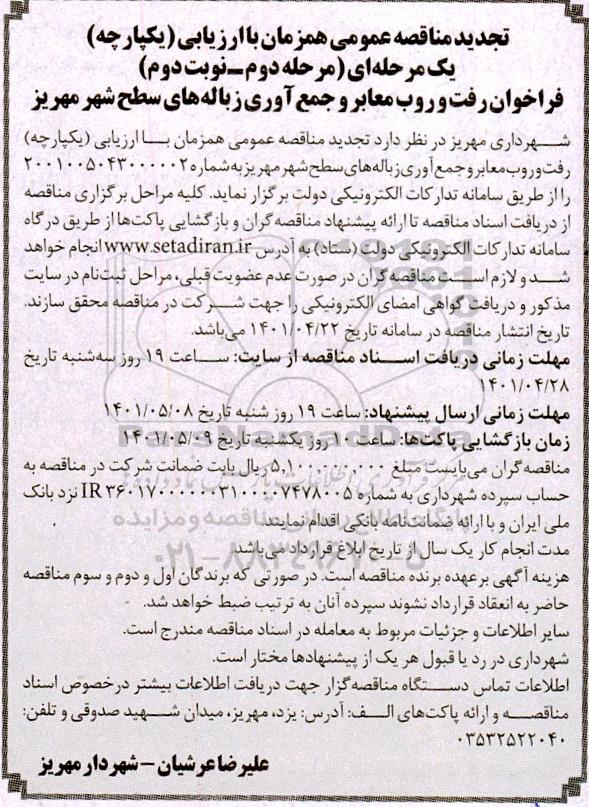 تجدید مناقصه عمومی همزمان با ارزیابی (یکپارچه)
یک مرحله‌ای (مرحله دوم ـ نوبت دوم)
فراخوان رفت و روب معابر و جمع آوری زباله‌های سطح شهر مهریز
شهرداری مهریز در نظر دارد تجدید مناقصه عمومی همزمان با ارزیابی (یکپارچه)
رفت و روب معابر و جمع آوری زباله‌های سطح شهر مهریز به شماره ۲۰۰۱۰۰۵۰۴۳۰۰۰۰۰۲
را از طریق سامانه تدارکات الکترونیکی دولت برگزار نماید. کلیه مراحل برگزاری مناقصه
از دریافت اسناد مناقصه تا ارائه پیشنهاد مناقصه‌گران و بازگشایی پاکت‌ها از طریق درگاه
سامانه تدارکات الکترونیکی دولت (ستاد) به آدرس www.setadiran.ir انجام خواهد
شد و لازم است مناقصه‌گران در صورت عدم عضویت قبلی، مراحل ثبت‌نام در سایت
مذکور و دریافت گواهی امضای الکترونیکی را جهت شرکت در مناقصه محقق سازند.
تاریخ انتشار مناقصه در سامانه تاریخ ۱۴۰۱/۰۴/۲۲ می‌باشد.
مهلت زمانی دریافت اسناد مناقصه از سایت: ساعت ۱۹ روز سه‌شنبه تاریخ
۱۴۰۱/۰۴/۲۸
مهلت زمانی ارسال پیشنهاد: ساعت ۱۹ روز شنبه تاریخ ۱۴۰۱/۰۵/۰۸
زمان بازگشایی پاکت‌ها: ساعت ۱۰ روز یکشنبه تاریخ ۱۴۰۱/۰۵/۰۹
مناقصه‌گران می‌بایست مبلغ ۵,۱۰۰,۰۰۰,۰۰۰ ریال بابت ضمانت شرکت در مناقصه به
حساب سپرده شهرداری به شماره IR ۳۶۰۱۷۰۰۰۰۰۰۰۳۱۰۰۰۰۷۴۷۸۰۰۵ نزد بانک
ملی ایران و با ارائه ضمانت‌نامه بانکی اقدام نمایند.
مدت انجام کار یک سال از تاریخ ابلاغ قرارداد می‌باشد.
هزینه آگهی برعهده برنده مناقصه است. در صورتی که برندگان اول و دوم و سوم مناقصه
حاضر به انعقاد قرارداد نشوند سپرده آنان به ترتیب ضبط خواهد شد.
سایر اطلاعات و جزئیات مربوط به معامله در اسناد مناقصه مندرج است.
شهرداری در رد یا قبول هر یک از پیشنهادها مختار است.
اطلاعات تماس دستگاه مناقصه‌گزار جهت دریافت اطلاعات بیشتر درخصوص اسناد
مناقصه و ارائه پاکت‌های الف: آدرس: یزد، مهریز، میدان شهید صدوقی و تلفن:
۰۳۵۳۲۵۲۲۰۴۰
علیرضا عرشیان - شهردار مهریز
ParsNamadData
پایگاه اطلاع رسانی مناقصه و مزایده
۰۲۱-۸۸۳۴۹۶۷۰-۵